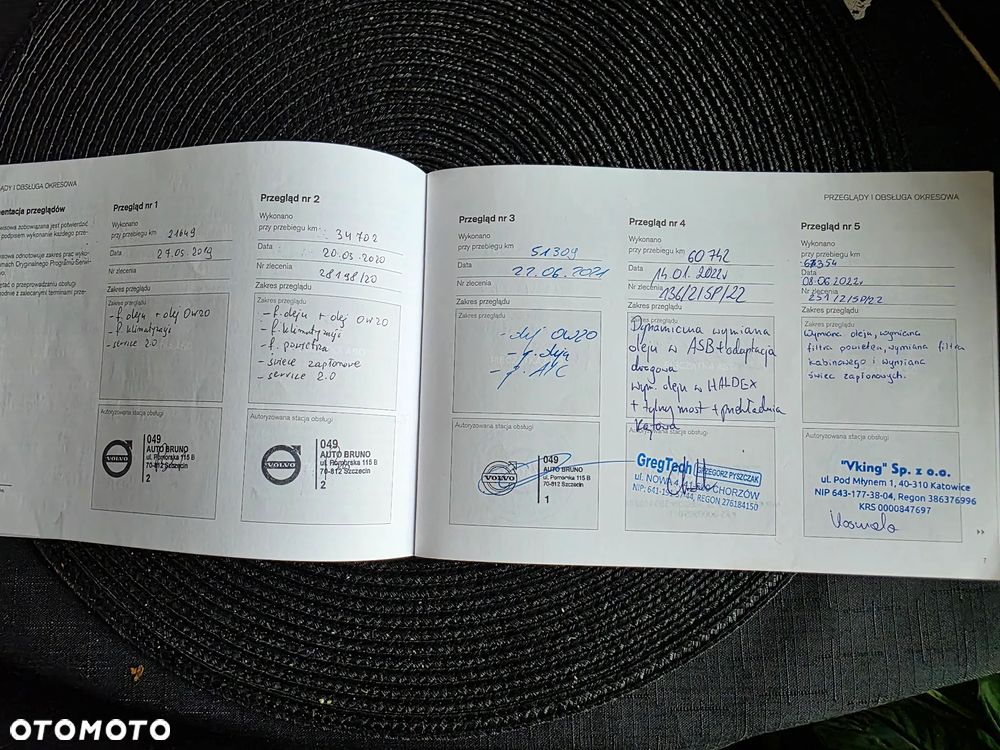 ĄDY I OBSŁUGA OKRESOWA
entacja przeglądów
wisowa zobowiązana jest potwierdzić
podpisem wykonanie każdego prze-
wisowa odnotowuje zakres prac wyko-
mach Oryginalnego Programu Serwi-
ętać o przeprowadzaniu obsługi
odnie z zalecanymi terminami prze-
Przegląd nr 1
Wykonano
przy przebiegu km 21649
Data 27.05.2019
Nr zlecenia
Zakres przeglądu
- f. oleju + olej 0W20
- f. klimatyzacji
- service 2.0
Autoryzowana stacja obsługi
VOLVO
049
AUTO BRUNO
ul. Pomorska 115 B
70-812 Szczecin
2
Przegląd nr 2
Wykonano
przy przebiegu km 34702
Data 20.05.2020
Nr zlecenia 28198/20
Zakres przeglądu
- f. oleju + olej 0W20
- f. klimatyzacji
- f. powietrza
- świece zapłonowe
- service 2.0
Autoryzowana stacja obsługi
VOLVO
049
AUTO BRUNO
ul. Pomorska 115 B
70-812 Szczecin
2
Przegląd nr 3
Wykonano
przy przebiegu km 51309
Data 22.06.2021
Nr zlecenia
Zakres przeglądu
- olej 0W20
- f. oleju
- f. A/C
Autoryzowana stacja obsługi
VOLVO
049
AUTO BRUNO
ul. Pomorska 115 B
70-812 Szczecin
1
PRZEGLĄDY I OBSŁUGA OKRESOWA
Przegląd nr 4
Wykonano
przy przebiegu km 60742
Data 14.01.2022r
Nr zlecenia 136/2/SP/22
Zakres przeglądu
Dynamiczna wymiana
oleju w ASB + adaptacja
drogowa
wym. oleju w HALDEX
+ tylny most + przekładnia
kątowa
stacja obsługi
GregTech GRZEGORZ PYSZCZAK
ul. NOWA CHORZÓW
REGON 276184150
Przegląd nr 5
Wykonano
przy przebiegu km
67354
Data
08.06.2022r
Nr zlecenia
251/2/SP/22
Zakres przeglądu
Wymiana oleju, wymiana
filtra powietrza, wymiana filtra
kabinowego i wymiana
świec zapłonowych.
Autoryzowana stacja obsługi
"Vking" Sp. z o.o.
ul. Pod Młynem 1, 40-310 Katowice
NIP 643-177-38-04, Regon 386376996
KRS 0000847697
7
OTOMOTO